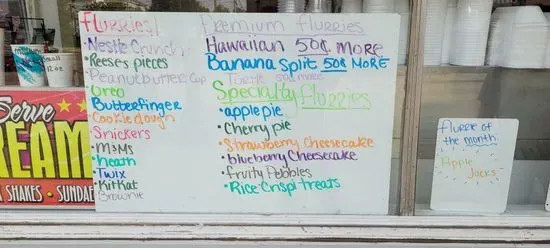 Flurries!
Nestle Crunch
•Reese's pieces
•Peanutbutter Cup
•Oreo
•Butterfinger
•Cookie dough
•Snickers
•M&Ms
•heath
•Twix
•KitKat
Brownie
Premium Flurries
Hawaiian 50¢ MORE
Banana Split 50¢ MORE
Turtle 50¢ MORE
Specialty Flurries
•apple pie
•Cherry pie
•Strawberry Cheesecake
•blueberry Cheesecake
•fruity Pebbles
•Rice Crispi treats
flurrie of
the month:
Apple
Jacks
Serve
REAM
SHAKES • SUNDAE
Small
12 oz